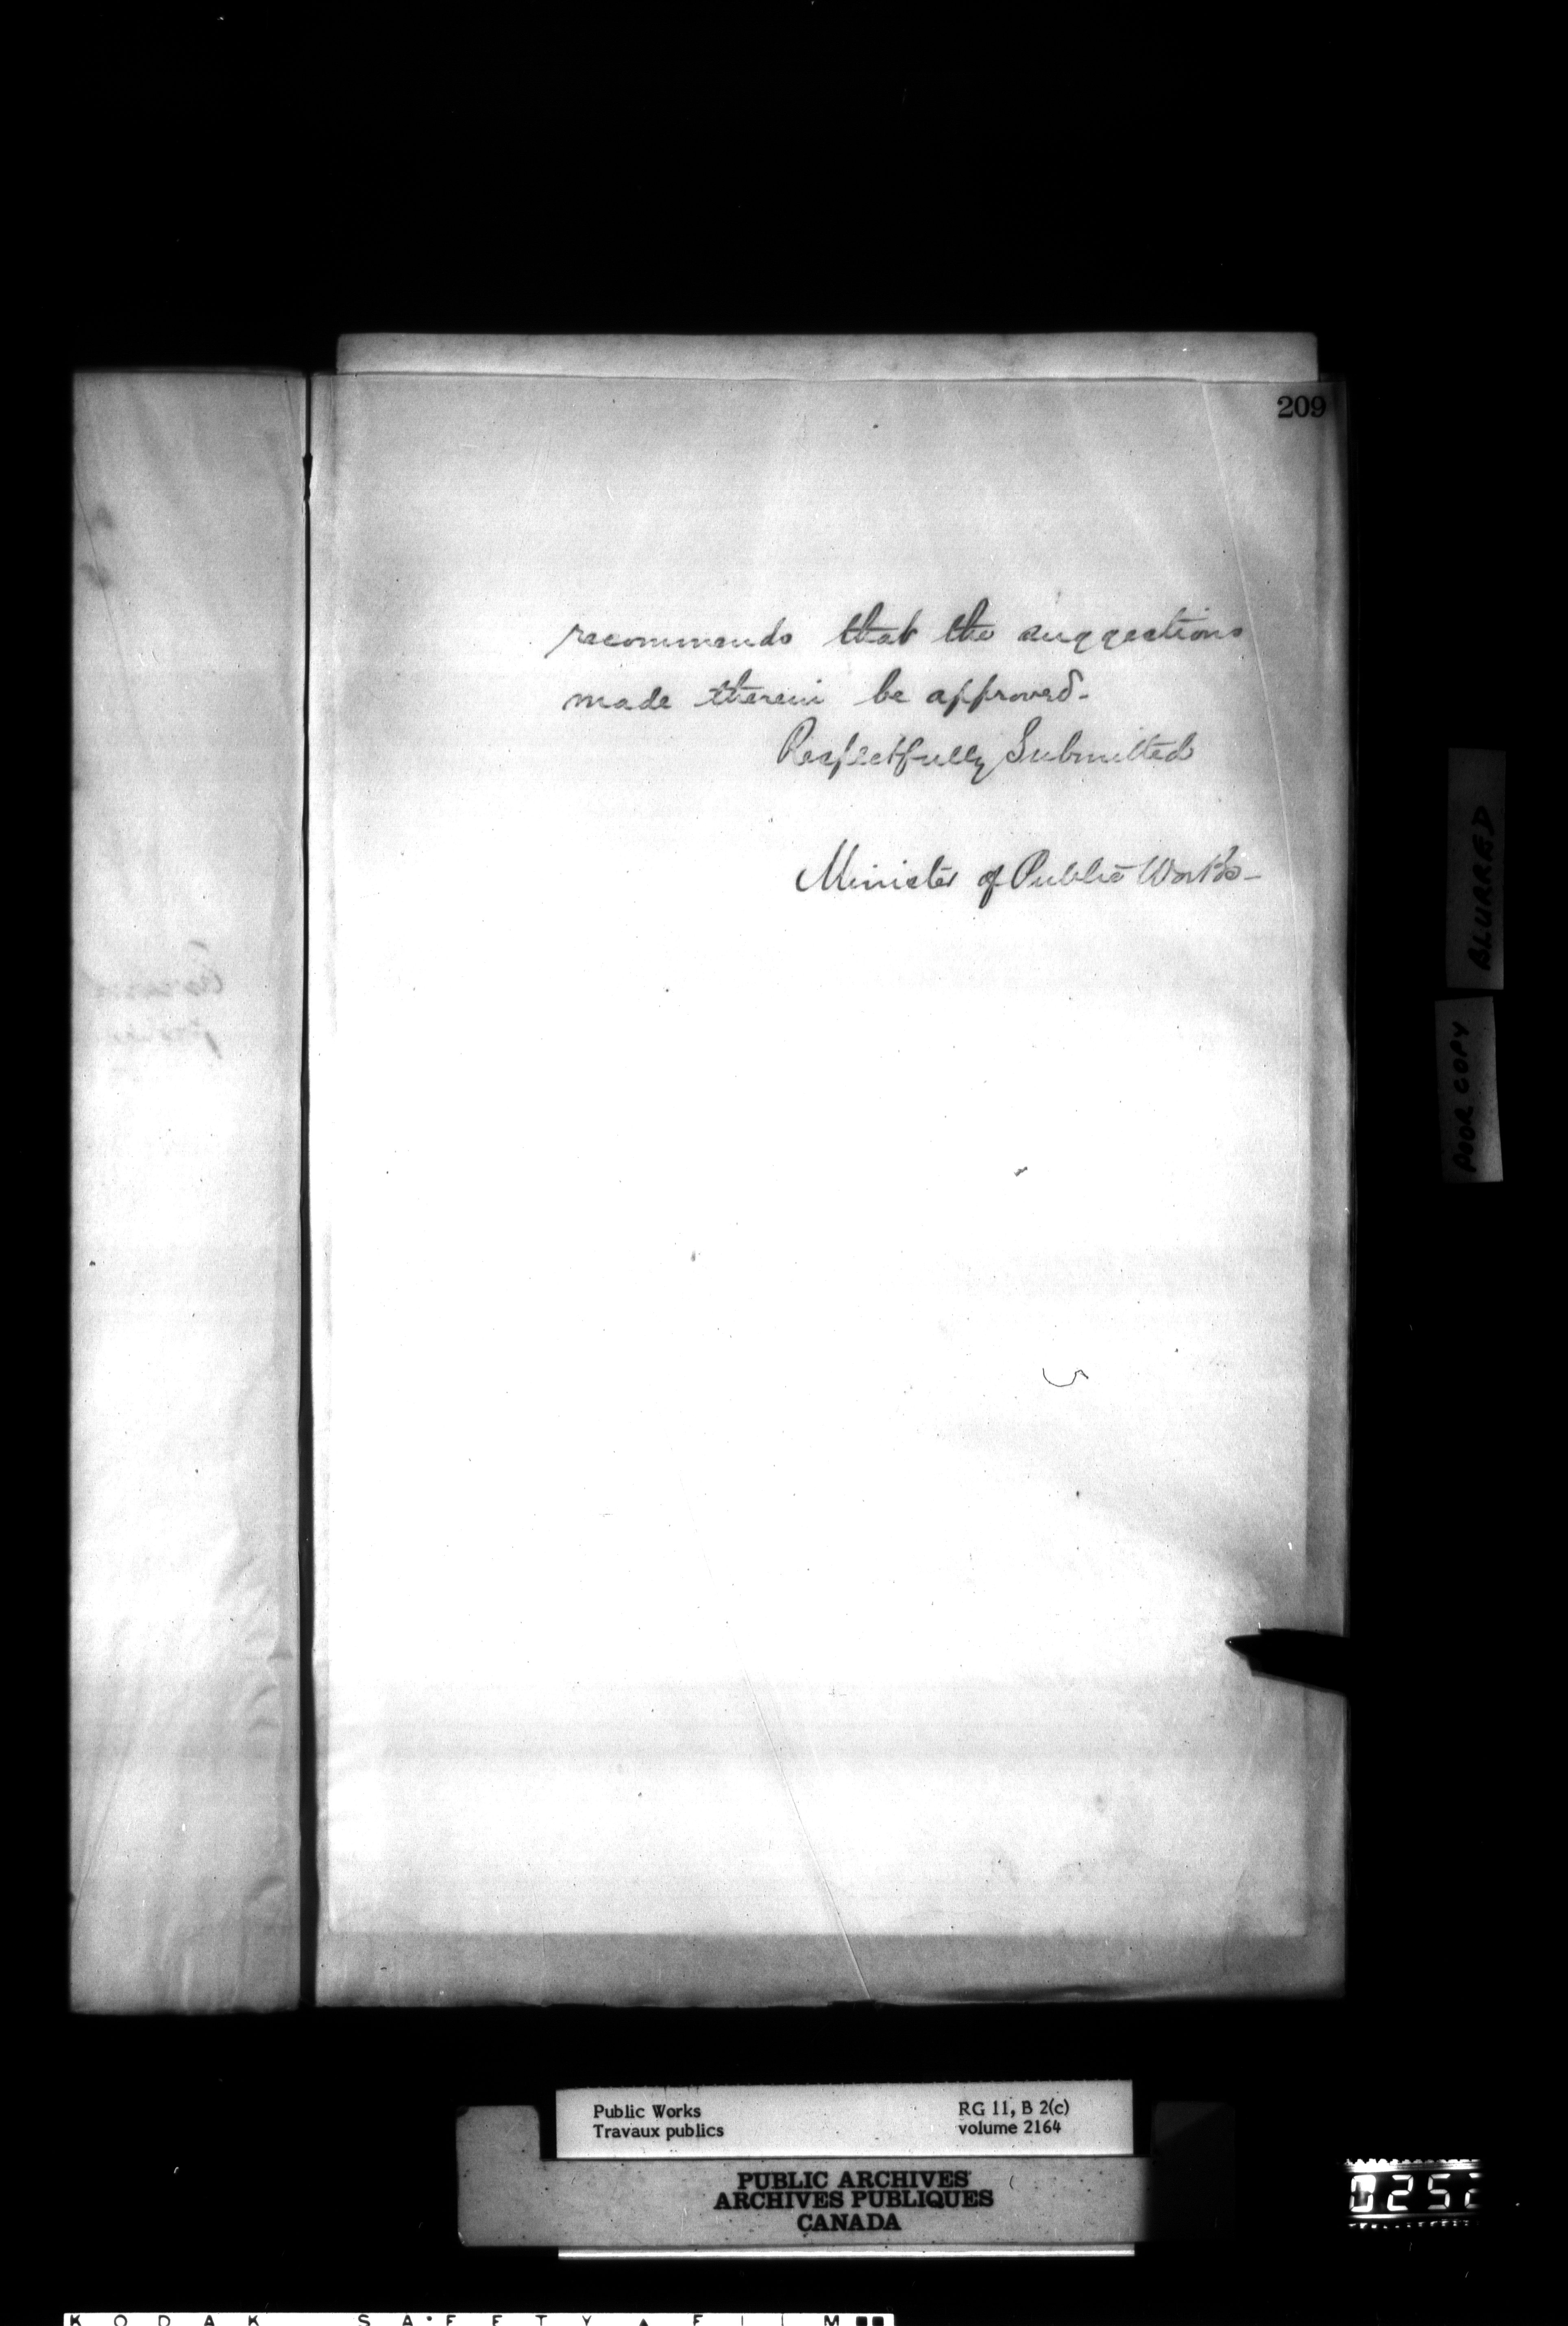 209
recommends that the suggestions
made therein be approved-
Respectfully Submitted
Minister of Public Works-
BLURRED
POOR COPY
Public Works
Travaux publics
RG 11, B 2(c)
volume 2164
PUBLIC ARCHIVES
ARCHIVES PUBLIQUES
CANADA
0252
KODAK SAFETY FILM